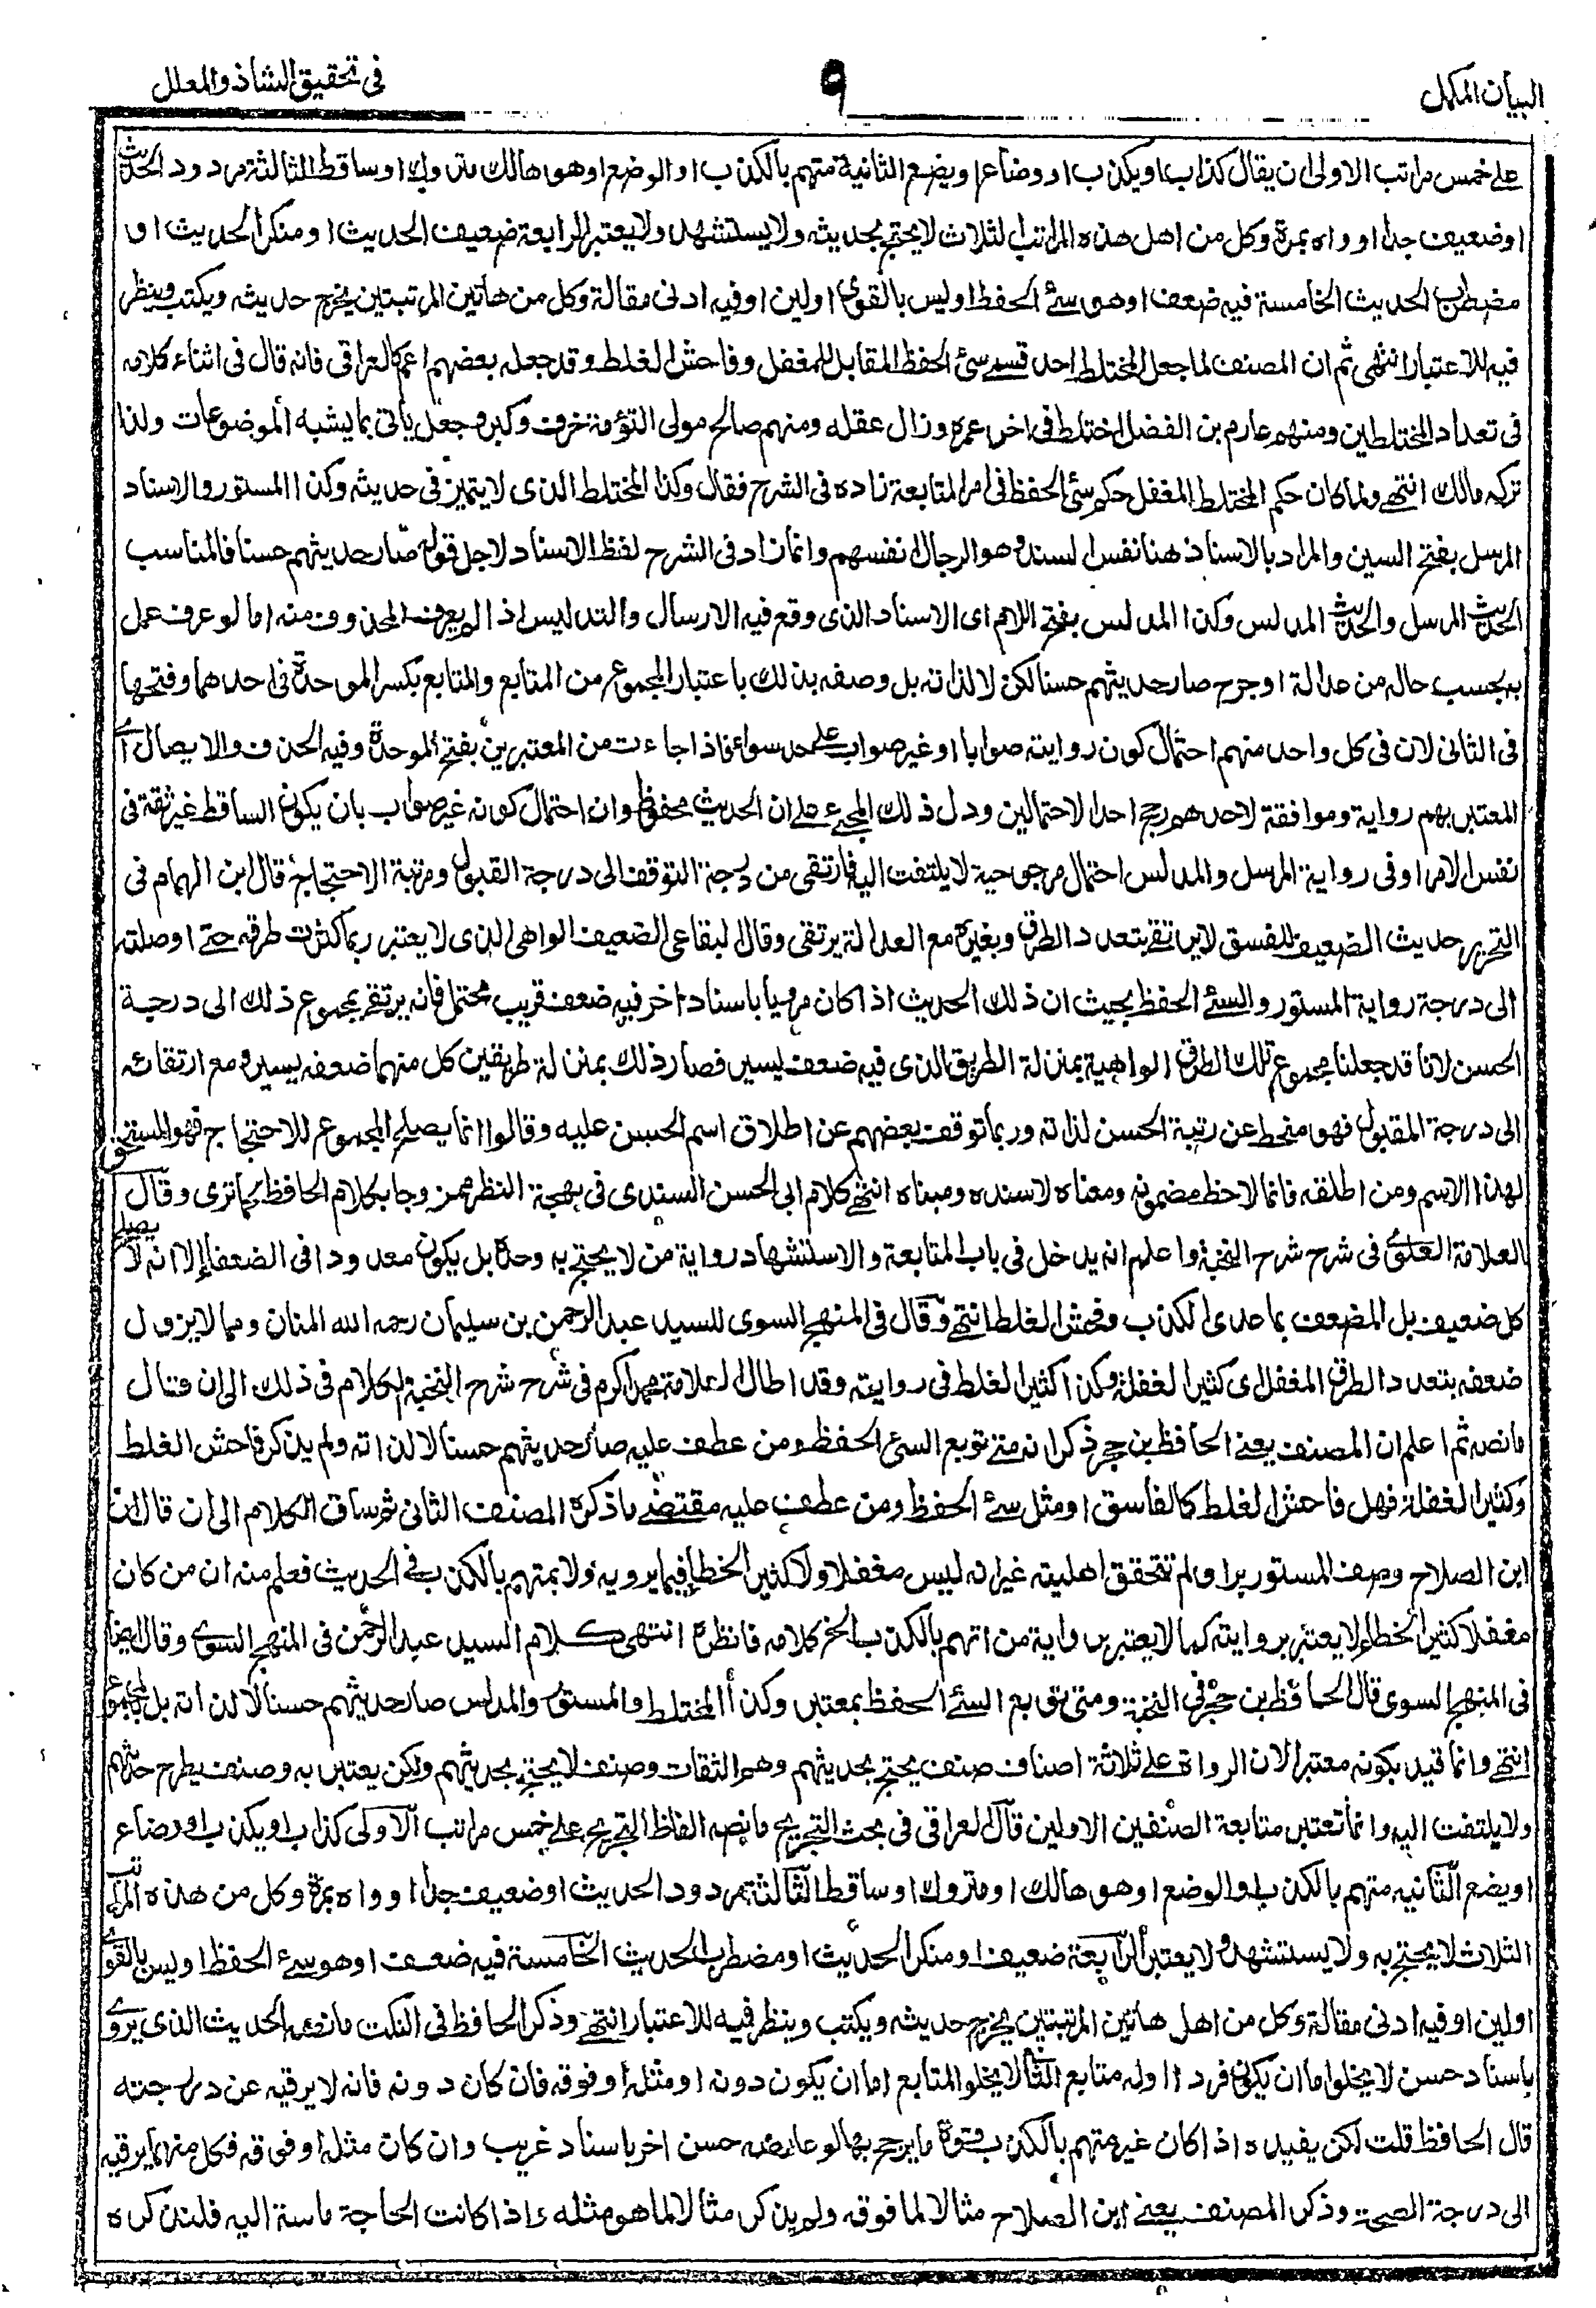 البيان المكمل
٩
في تحقيق الشاذ والمعلل
على خمس مراتب الاولى ان يقال كذاب او يكذب او وضاع او يضع الثانية متهم بالكذب او الوضع او هو هالك متروك او ساقط الثالثة مردود الحديث
او ضعيف جدا او واه بمرة وكل من اهل هذه المراتب الثلاث لا يحتج بحديثه ولا يستشهد ولا يعتبر الرابعة ضعيف الحديث او منكر الحديث او
مضطرب الحديث الخامسة فيه ضعف او هو سئ الحفظ او ليس بالقوي او لين او فيه ادنى مقالة وكل من هاتين المرتبتين يخرج حديثه ويكتب وينظر
فيه للاعتبار انتهى ثم ان المصنف لما جعل المختلط احد قسمي سئ الحفظ المقابل للمغفل وفاحش الغلط وقد جعله بعضهم اعم كالعراقي فانه قال في اثناء كلامه
في تعداد المختلطين ومنهم عارم بن الفضل اختلط في اخر عمره وزال عقله ومنهم صالح مولى التؤمة خرف وكبر وجعل ياتي بما يشبه الموضوعات ولذا
تركه مالك انتهى ولما كان حكم المختلط المغفل حكم سئ الحفظ في امر المتابعة زاده في الشرح فقال وكذا المختلط الذي لا يتميز في حديثه وكذا المستور والاسناد
المرسل بفتح السين والمراد بالاسناد هنا نفس السند وهو الرجال انفسهم وانما زاد في الشرح لفظ الاسناد لاجل قوله صار حديثهم حسنا فالمناسب
الحديث المرسل والحديث المدلس وكذا المدلس بفتح اللام اى الاسناد الذي وقع فيه الارسال والتدليس اذا لم يعرف المحذوف منه اما لو عرف عمل
به بحسب حاله من عدالة او جرح صار حديثهم حسنا لكن لا لذاته بل وصفه بذلك باعتبار المجموع من المتابع والمتابع بكسر الموحدة في احدهما وفتحها
في الثاني لان في كل واحد منهم احتمال كون روايته صوابا او غير صواب على حد سواء فاذا جاءت من المعتبرين بفتح الموحدة وفيه الحذف والايصال اى
المعتبر بهم رواية وموافقة لاحدهم رجح احد الاحتمالين ودل ذلك المجئ على ان الحديث محفوظ وان احتمال كونه غير صواب بان يكون الساقط غير ثقة في
نفس الامر او في رواية المرسل والمدلس احتمال مرجوحية لا يلتفت اليه فارتقى من درجة التوقف الى درجة القبول ومرتبة الاحتجاج قال ابن الهمام في
التحرير حديث الضعيف للفسق لا يرتقى بتعدد الطرق وبغيره مع العدالة يرتقى وقال البقاعي الضعيف الواهي الذي لا يعتبر ربما كثرت طرقه حتى اوصلته
الى درجة رواية المستور والسئ الحفظ بحيث ان ذلك الحديث اذا كان مرويا باسناد اخر فيه ضعف قريب محتمل فانه يرتقى بمجموع ذلك الى درجة
الحسن لانا قد جعلنا مجموع تلك الطرق الواهية بمنزلة الطريق الذي فيه ضعف يسير فصار ذلك بمنزلة طريقين كل منهما ضعفه يسير ومع ارتقائه
الى درجة المقبول فهو منحط عن رتبة الحسن لذاته وربما توقف بعضهم عن اطلاق اسم الحسن عليه وقالوا انما يصلح المجموع للاحتجاج فهو المستحق
لهذا الاسم ومن اطلقه فانما لاحظ مضمونه ومعناه لا سنده ومبناه انتهى كلام ابى الحسن السندى في بهجة النظر ممزوجا بكلام الحافظ كما ترى وقال
العلامة العلوى في شرح شرح النخبة واعلم انه يدخل في باب المتابعة والاستشهاد رواية من لا يحتج به وحده بل يكون معدودا في الضعفاء الا انه لا يصلح
كل ضعيف بل المضعف بما عدى الكذب وفحش الغلط انتهى وقال في المنهج السوى للسيد عبد الرحمن بن سليمان رحمه الله المنان ومما لا يزول
ضعفه بتعدد الطرق المغفل اى كثير الغفلة وكذا كثير الغلط في روايته وقد اطال العلامة محمد اكرم في شرح شرح النخبة الكلام في ذلك الى ان قال
ما نصه ثم اعلم ان المصنف يعنى الحافظ بن حجر ذكر انه متى توبع السئ الحفظ ومن عطف عليه صار حديثهم حسنا لا لذاته ولم يذكر فاحش الغلط
وكثير الغفلة فهل فاحش الغلط كالفاسق او مثل سئ الحفظ ومن عطف عليه مقتضى ما ذكره المصنف الثاني ثم ساق الكلام الى ان قال ان
ابن الصلاح وصف المستور برا ولم تتحقق اهليته غير انه ليس مغفلا ولا كثير الخطأ فيما يرويه ولا بمتهم بالكذب في الحديث فعلم منه ان من كان
مغفلا كثير الخطاء لا يعتبر بروايته كما لا يعتبر برواية من اتهم بالكذب الى اخر كلامه فانظره انتهى كلام السيد عبد الرحمن في المنهج السوى وقال ايضا
في المنهج السوى قال الحافظ بن حجر في النخبة ومتى توبع السئ الحفظ بمعتبر وكذا المختلط والمستور والمدلس صار حديثهم حسنا لا لذاته بل بالمجموع
انتهى وانما قيد بكونه معتبرا لان الرواة على ثلاثة اصناف صنف يحتج بحديثهم وهم الثقات وصنف لا يحتج بحديثهم ولكن يعتبر به وصنف يطرح حديثهم
ولا يلتفت اليه وانما تعتبر متابعة الصنفين الاولين قال العراقي في بحث التجريح ما نصه الفاظ التجريح على خمس مراتب الاولى كذاب او يكذب او وضاع
او يضع الثانيه متهم بالكذب او الوضع او هو هالك او متروك او ساقط الثالثة مردود الحديث او ضعيف جدا او واه بمرة وكل من هذه المراتب
الثلاث لا يحتج به ولا يستشهد ولا يعتبر الرابعة ضعيف او منكر الحديث او مضطرب الحديث الخامسة فيه ضعف او هو سئ الحفظ او ليس بالقوى
او لين او فيه ادنى مقالة وكل من اهل هاتين المرتبتين يخرج حديثه ويكتب وينظر فيه للاعتبار انتهى وذكر الحافظ في النكت ما نصه الحديث الذي يروى
باسناد حسن لا يخلو اما ان يكون فردا او له متابع الثاني لا يخلو المتابع اما ان يكون دونه او مثله او فوقه فان كان دونه فانه لا يرقيه عن درجته
قال الحافظ قلت لكن يفيده اذا كان غير متهم بالكذب قوة ما يرجح بها لو عارضه حسن اخر باسناد غريب وان كان مثله او فوقه فكل منهما يرقيه
الى درجة الصحة وذكر المصنف يعنى ابن الصلاح مثالا لما فوقه ولم يذكر مثالا لما هو مثله واذا كانت الحاجة ماسة اليه فلنذكره